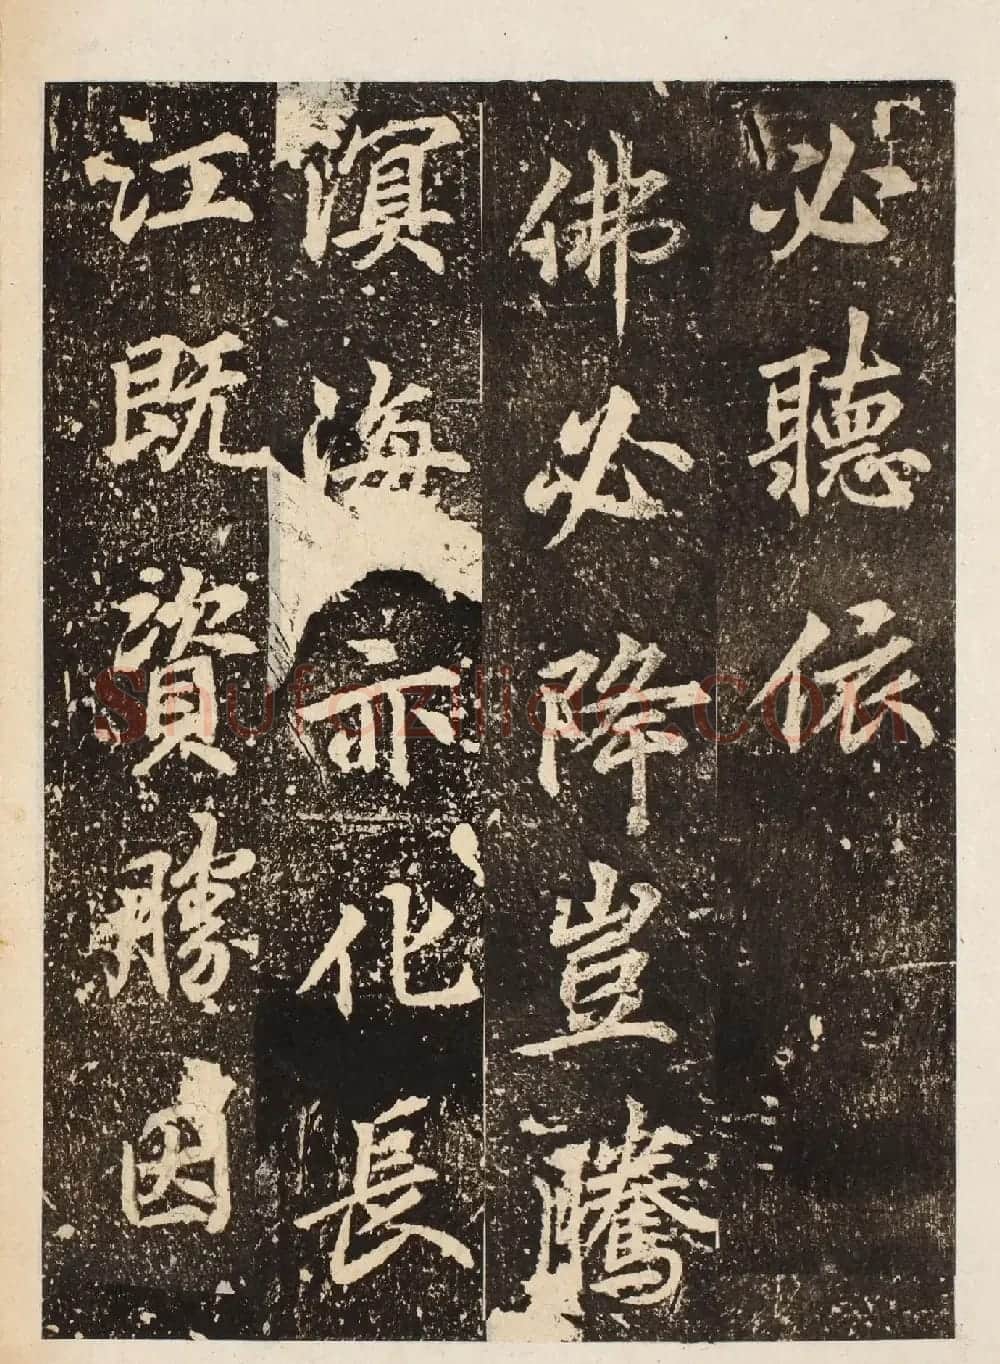 必聽依
佛必降豈騰
溟海亦化長
江既資勝因
Shufaziliao.COM